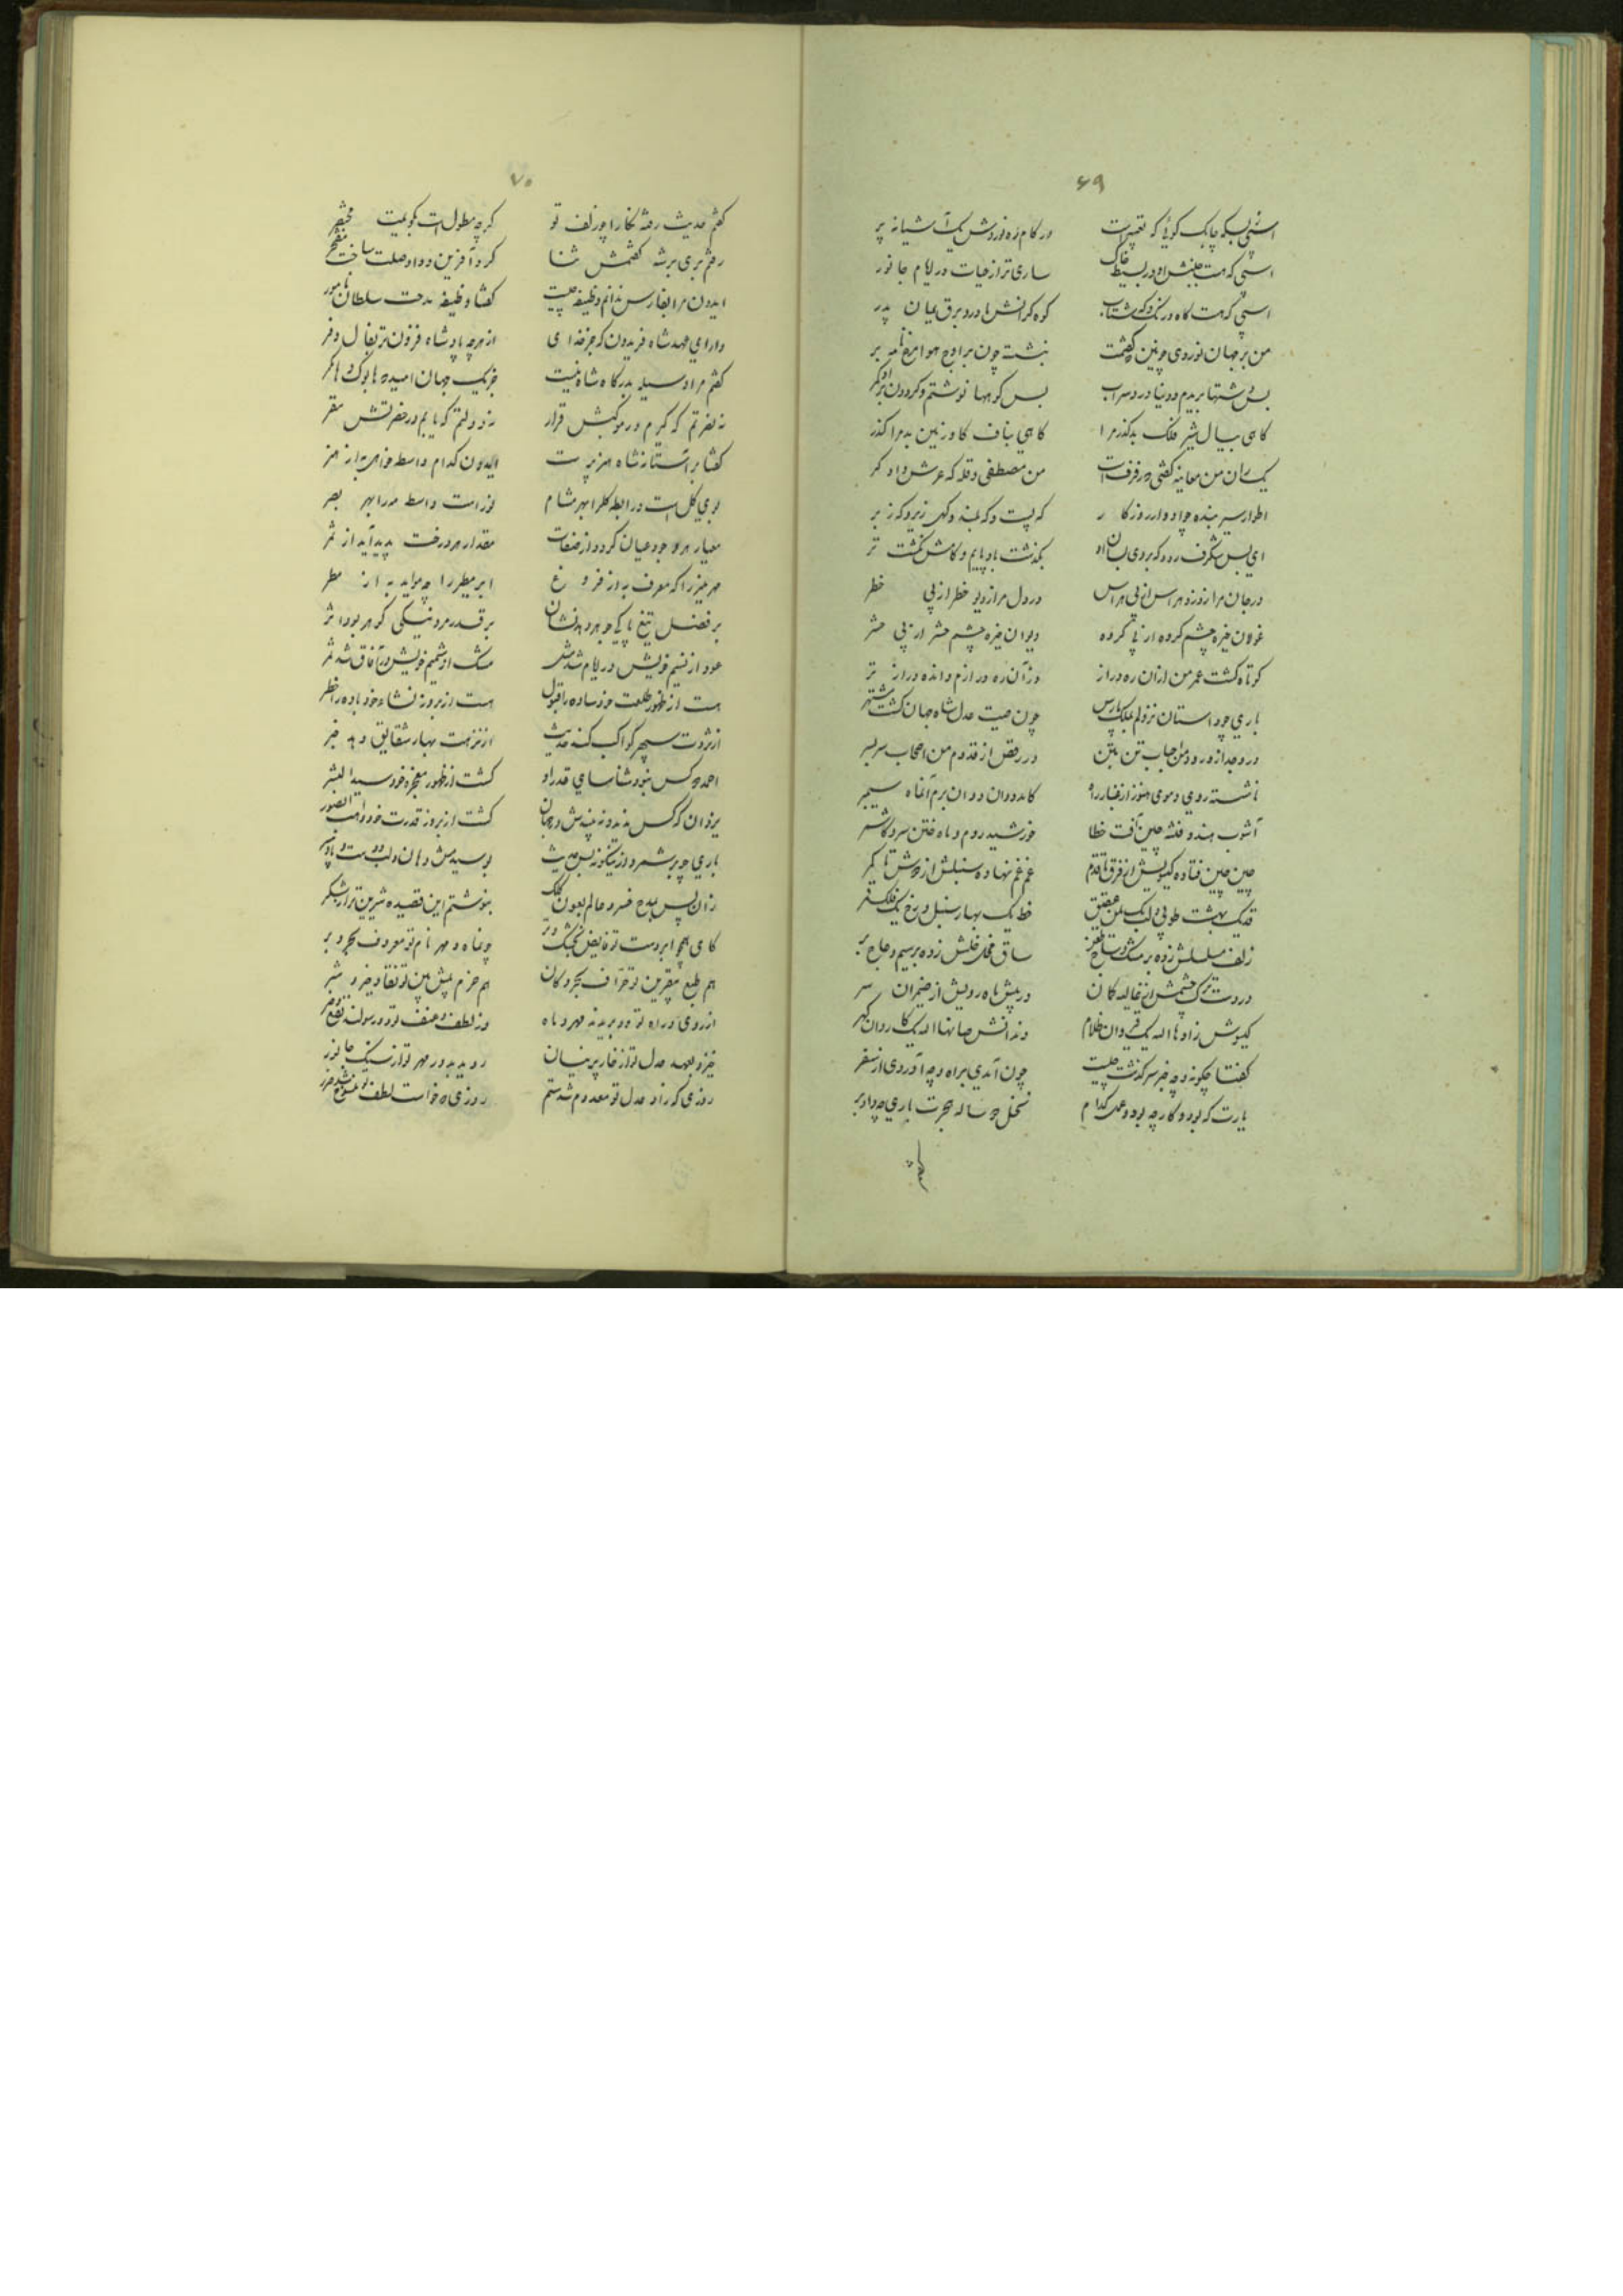 ۶۹
در کام ره نوردش یک آشیانه پر
اسبی که هست جنبش او در بسیط خاک ساری تر از حیات در اندام جانور
اسبی که هست گاه درنگ و گه شتاب کوه گرانش مادر و برق یمان پدر
من بر جهان نوردی چونین که گفتمت بنشسته چون بر اوج هوا مرغ نامه بر
بس دشتها بریدم و دریا در سراب بس کوهها نوشتم و گردون بر او کمر
گاهی بیال شیر فلک بد گذر مرا گاهی بناف گاو زمین بد مرا گذر
من مصطفی و قله که عرش داد گر
اطوار سیر بنده چو ادوار روزگار گه پست و گه بلند و گهی زیر و گه زبر
ای بس شگرف رود که بر وی بسان باد بگذشت باد پایم و گامش نگشت تر
در جان مرا ز دزد هراس از پی هراس در دل مرا ز دیو خطر از پی خطر
غولان خیره چشم گروه از پی گروه دیوان خیره چشم حشر از پی حشر
کوتاه گشت عمر من از آن ره دراز وز آن ره دراز م وانده دراز تر
باری چو داستان نزولم بملک پارس چون صیت عدل شاه جهان گشت مشتهر
در وجد از ورود من احباب تن بتن در رقص از قدوم من اصحاب سر بسر
ناشسته روی و موی هنوز از غبار راه کامد دوان دوان برم آن ماه سیمبر
آشوب هند و فتنه چین آفت خطا خورشید روم و ماه ختن سرو کاشمر
چین چین فتاده گیسویش از فرق تا قدم غم غم نهاده سنبلش از دوش تا کمر
قد یک بهشت طوبی و لب یک یمن عقیق خط یک بهار سنبل و رخ یک فلک قمر
زلف مسلسلش زده بر مشک و
در دست ترک چشمش از غالیه کمان در پیش ماه رویش از ضیمران سپر
گیسوش زاد ها الله یک قیروان ظلام دندانش صانها الله یک کاروان گهر
گفتا چگونه و چه خبر سرگذشت چیست چون آمدی براه و چه آوردی از سفر
یارت که بود و کار چه بود و عمل کدام نخل دو ساله هجرت باری چه داد بر
۷۰
گفتم حدیث رفته نگارا چو زلف تو گرچه مطول است بگویمت مختصر
رفتم بری برشه گفتمش ثنا کرد آفرین و داد صلت ساخت مفتخر
ایدون مرا بفارس ندانم وظیفه چیست گفتا وظیفه مدحت سلطان نامور
دارای عهد شاه فریدون که جز خدای از هر چه پادشاه فزون تر بفال و فر
گفتم مرا وسیله بدرگاه شاه نیست جز یک جهان امید و
نه نفرتم که گیرم در موکبش قرار نه دولتم که یابم در حضرتش مقر
گفتا بر آستانه شاه هنرپرست ایدون کدام واسطه خواهی به از هنر
بوی گل است رابطه گل را بهر مشام نور است واسطه مه را بهر بصر
معیار هر وجود عیان گردد از صفات مقدار هر درخت پدید آید از ثمر
ابر مطر را چه مواید به از مطر
بر فضل تیغ پاکی جوهر دهد نشان بر قدر مرد نیکی گوهر بود اثر
عود از نسیم خویش در ایام شد مثل مشک از شمیم خویش در آفاق شد ثمر
هست از ظهور طلعت خود ساده را قبول هست از بروز نشاه خود باده را خطر
از ثروت سپهر کواکب کند حدیث از نزهت بهار شقایق دهد خبر
احمد که کس نبود شناسای قدر او گشت از ظهور معجزه خود سید البشر
یزدان که کس ندید و نه بیندش در جهان گشت از بروز قدرت خود واهب الصور
باری چو بر شمرد ازینگونه بس حدیث بوسیدمش دهان و لب و دست و پا و سر
زان پس بمدح خسرو عالم بعون کلک بنوشتم این قصیده شیرین تر از شکر
کای همچو ابر دست تو فایض بخشک و تر چو ماه و مهر نام تو معروف بحر و بر
هم طبع بیقرین تو خراف بحر و کان هم حزم پیش بین تو نقاد خیر و شر
از روی و رای تو دو بریدند مهر و ماه وز لطف و عنف تو دو رسولند نفع و ضر
خیزد بعهد عدل تو از خار پرنیان روید بدور مهر تو از سنگ جانور
روزی که زاد عدل تو معدوم شد ستم روزی که خواست لطف تو منسوخ شد ضرر